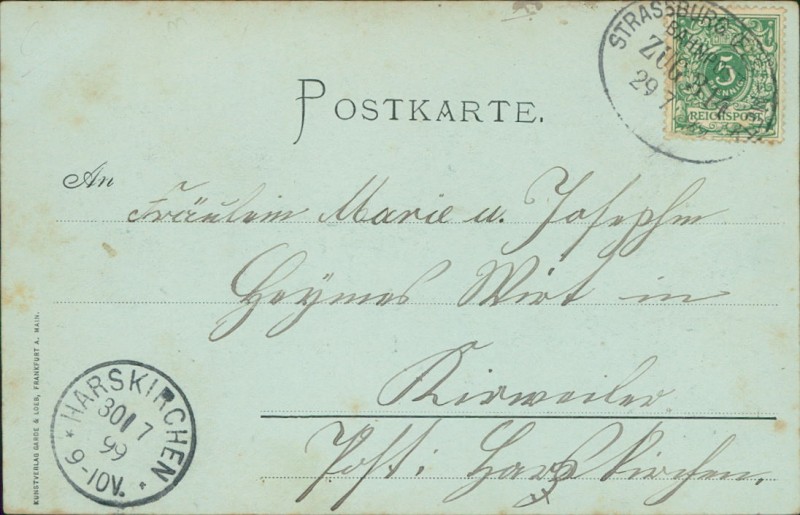 STRASSBURG (E
BAHNP
ZUG 814
29 7
5
PFENNIG
REICHSPOST
POSTKARTE.
An
Fräulein Marie u. Josephin
Heymes Wirt in
Kirweiler
Post: Harskirchen.
HARSKIRCHEN
30 7
99
9-10V.
KUNSTVERLAG GARDE & LOEB, FRANKFURT A. MAIN.